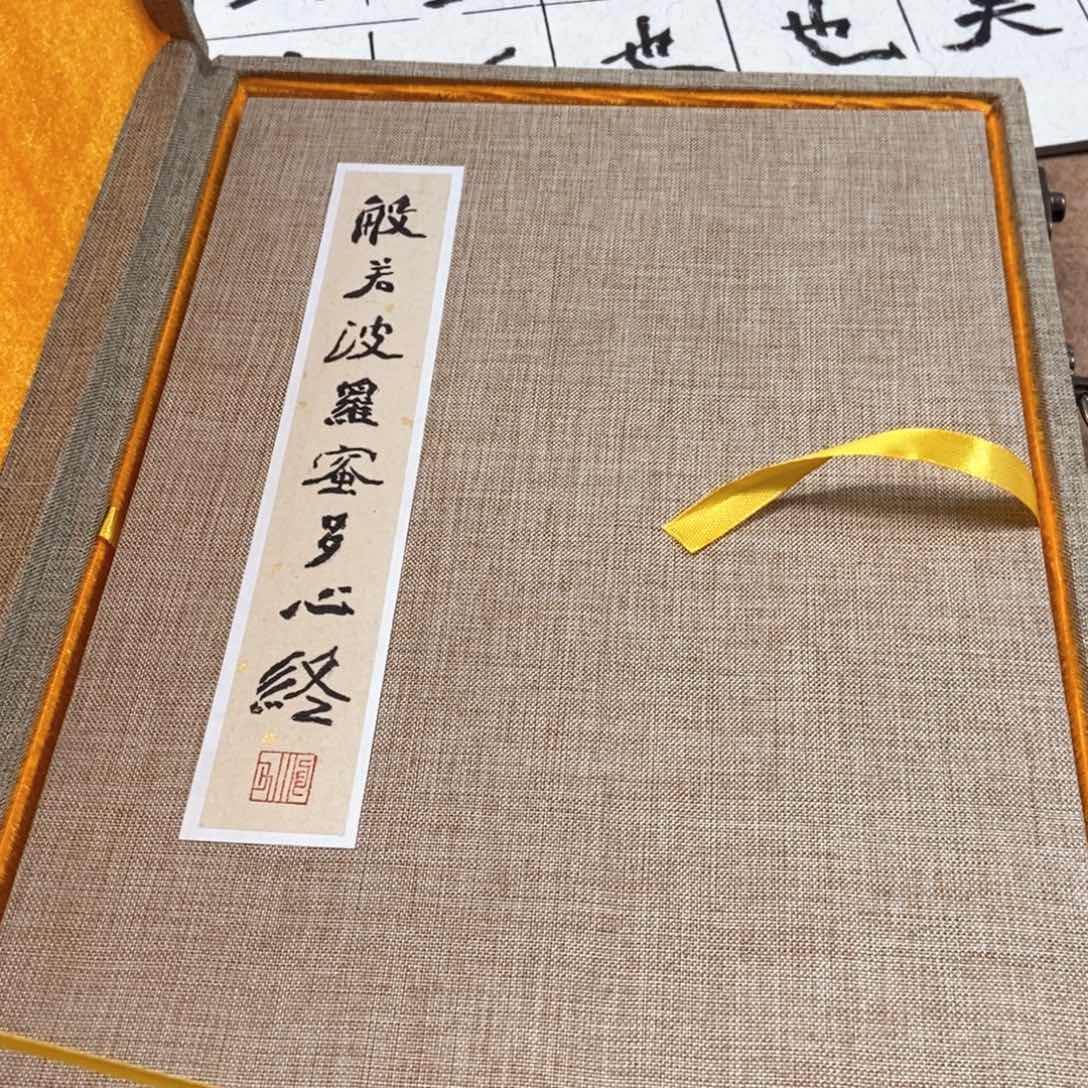 也
也
般若波羅蜜多心經